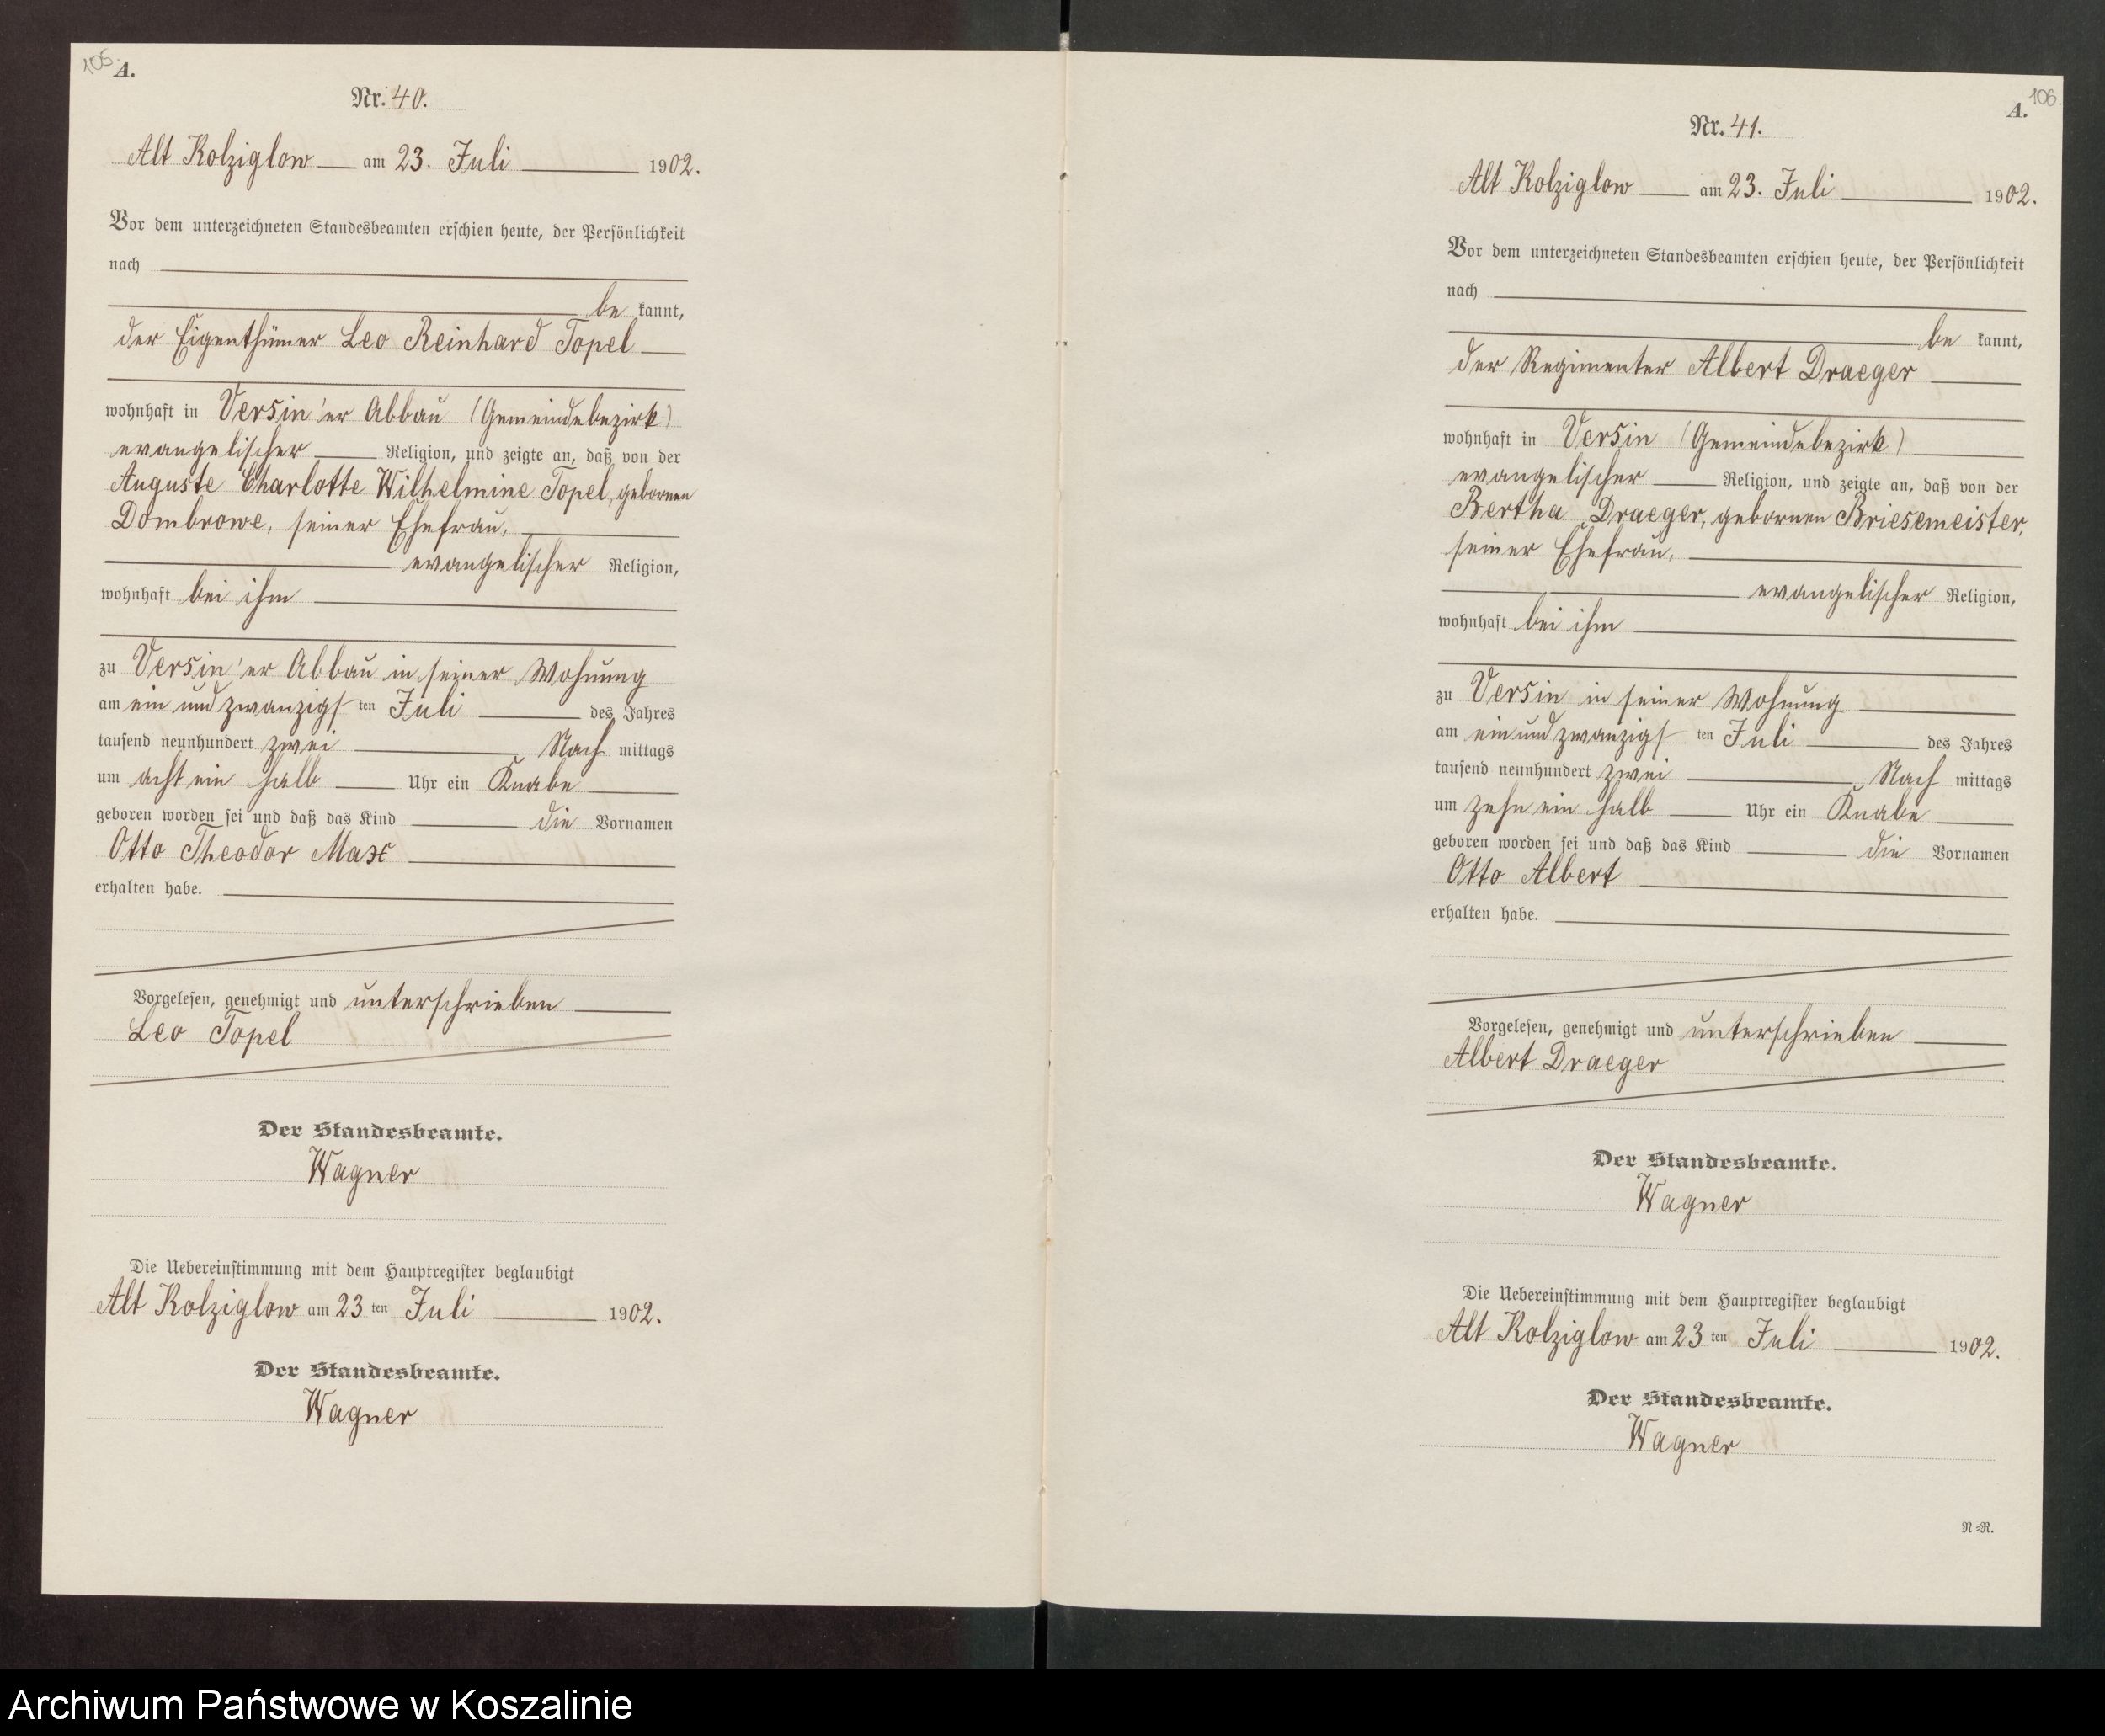 105
A.
Nr. 40.
Alt Kolziglow am 23. Juli 1902.
Vor dem unterzeichneten Standesbeamten erschien heute, der Persönlichkeit
nach
be kannt,
der Eigenthümer Leo Reinhard Topel
wohnhaft in Versin'er Abbau (Gemeindebezirk)
evangelischer Religion, und zeigte an, daß von der
Auguste Charlotte Wilhelmine Topel, gebornen
Dombrowe, seiner Ehefrau,
evangelischer Religion,
wohnhaft bei ihm
zu Versin'er Abbau in seiner Wohnung
am ein und zwanzigsten Juli des Jahres
tausend neunhundert zwei Nach mittags
um acht ein halb Uhr ein Knabe
geboren worden sei und daß das Kind die Vornamen
Otto Theodor Max
erhalten habe.
Vorgelesen, genehmigt und unterschrieben
Leo Topel
Der Standesbeamte.
Wagner
Die Uebereinstimmung mit dem Hauptregister beglaubigt
Alt Kolziglow am 23 ten Juli 1902.
Der Standesbeamte.
Wagner
106.
A.
Nr. 41.
Alt Kolziglow am 23. Juli 1902.
Vor dem unterzeichneten Standesbeamten erschien heute, der Persönlichkeit
nach
be kannt,
der Regimenter Albert Draeger
wohnhaft in Versin (Gemeindebezirk)
evangelischer Religion, und zeigte an, daß von der
Bertha Draeger, gebornen Briesemeister,
seiner Ehefrau,
evangelischer Religion,
wohnhaft bei ihm
zu Versin in seiner Wohnung
am ein und zwanzigsten Juli des Jahres
tausend neunhundert zwei Nach mittags
um zehn ein halb Uhr ein Knabe
geboren worden sei und daß das Kind die Vornamen
Otto Albert
erhalten habe.
Vorgelesen, genehmigt und unterschrieben
Albert Draeger
Der Standesbeamte.
Wagner
Die Uebereinstimmung mit dem Hauptregister beglaubigt
Alt Kolziglow am 23 ten Juli 1902.
Der Standesbeamte.
Wagner
N=R.
Archiwum Państwowe w Koszalinie